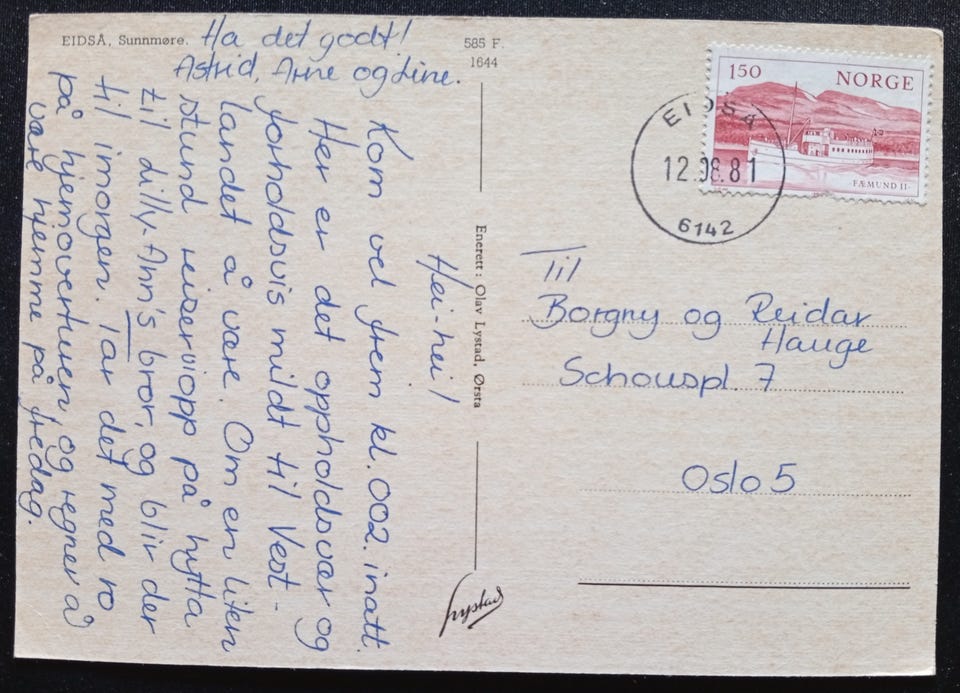 EIDSÅ, Sunnmøre.
585 F.
1644
Hei-hei!
Kom vel frem kl. 002. inatt.
Her er det oppholdsvær og
forholdsvis mildt til Vest-
landet å være. Om en liten
stund reiser vi opp på hytta
til dilly-Ann's bror, og blir der
til imorgen. Tar det med ro
på hjemoverturen, og regner å
være hjemme på fredag.
Ha det godt!
Astrid, Arne og Line.
Enerett: Olav Lystad, Ørsta
Lystad
150 NORGE
FÆMUND II
EIDSÅ
12.08.81
6142
Til
Borgny og Reidar
Hauge
Schouspl. 7
Oslo 5